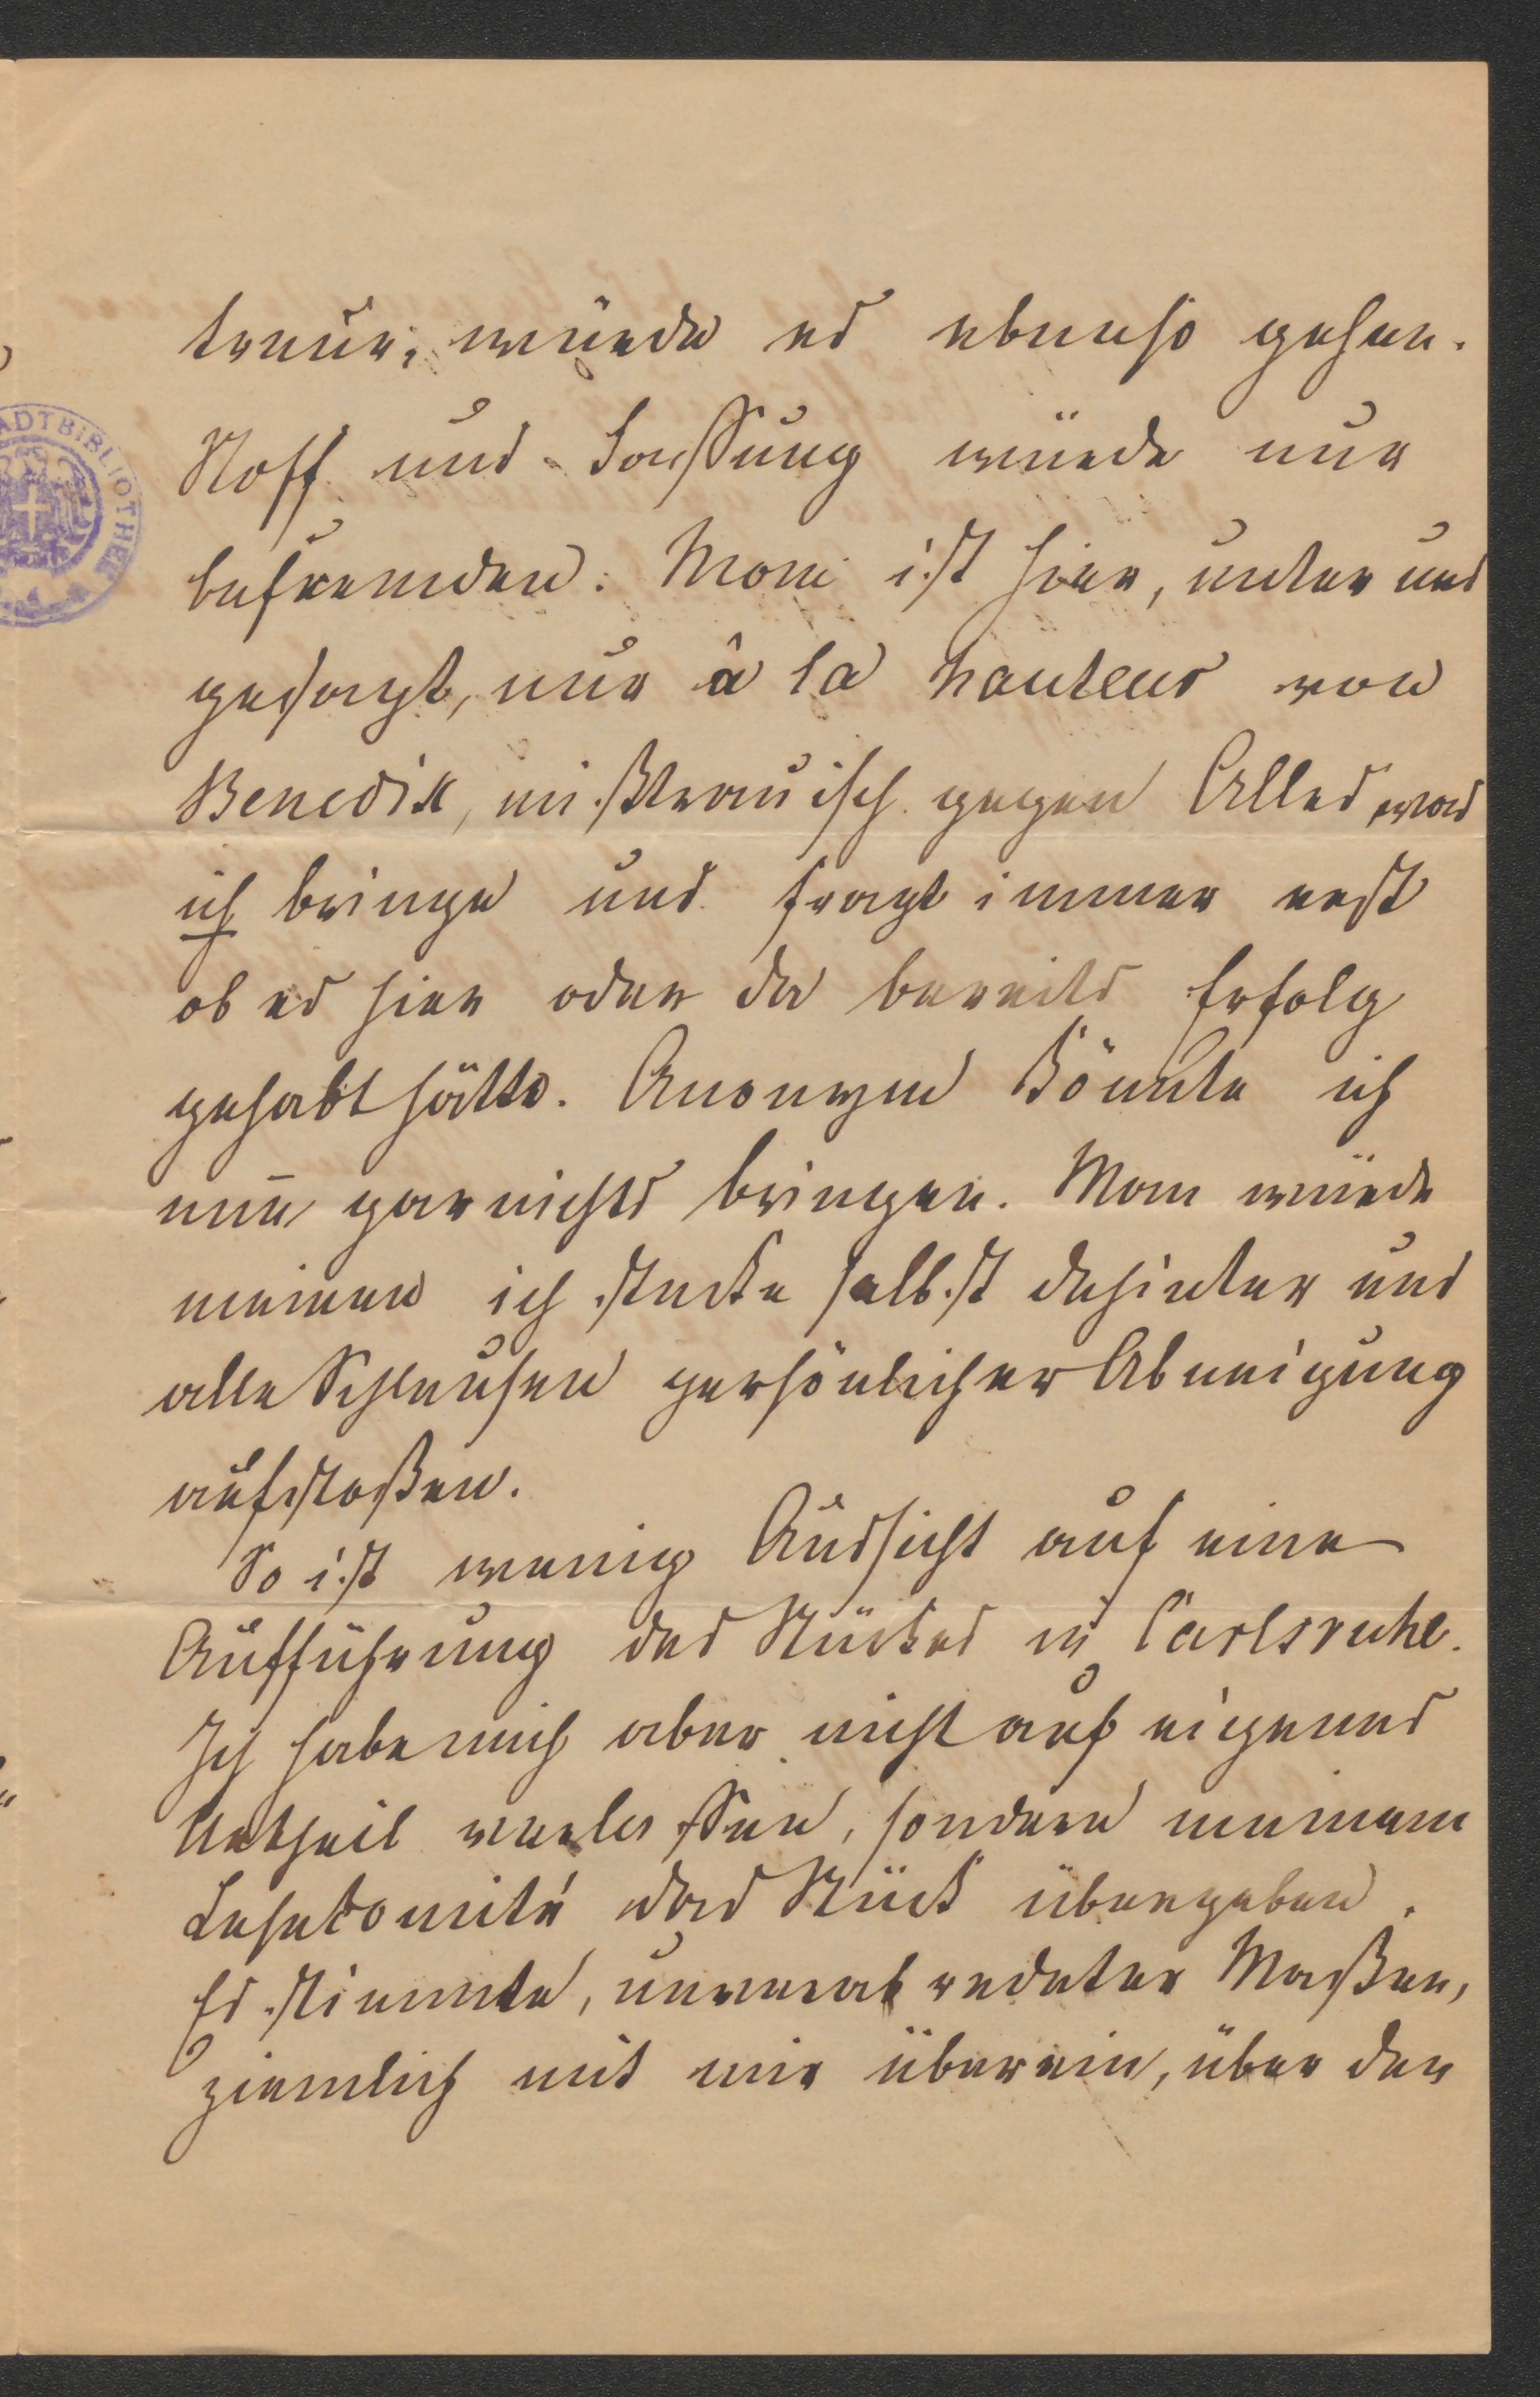 treur, würde es ebenso gehen.
Stoff und Fassung würde nur
befremden. Man ist hier, unter uns
gesagt, nur à la hauteur von
Benedix, mißtrauisch gegen Alles, was
ich bringe und fragt immer erst
ob es hier oder da bereits Erfolg
gehabt hätte. Anonym könnte ich
nun gar nichts bringen. Man würde
meinen ich stecke selbst dahinter und
alle Schleusen persönlicher Abneigung
aufstoßen.
So ist wenig Aussicht auf eine
Aufführung des Stückes in Carlsruhe.
Ich habe mich aber nicht auf eigenes
Urtheil verlassen, sondern meinem
Lesekomité das Stück übergeben.
Es stimmte, unverabredeter Maßen,
ziemlich mit mir überein, über den
ADTBIBLIOTHEK